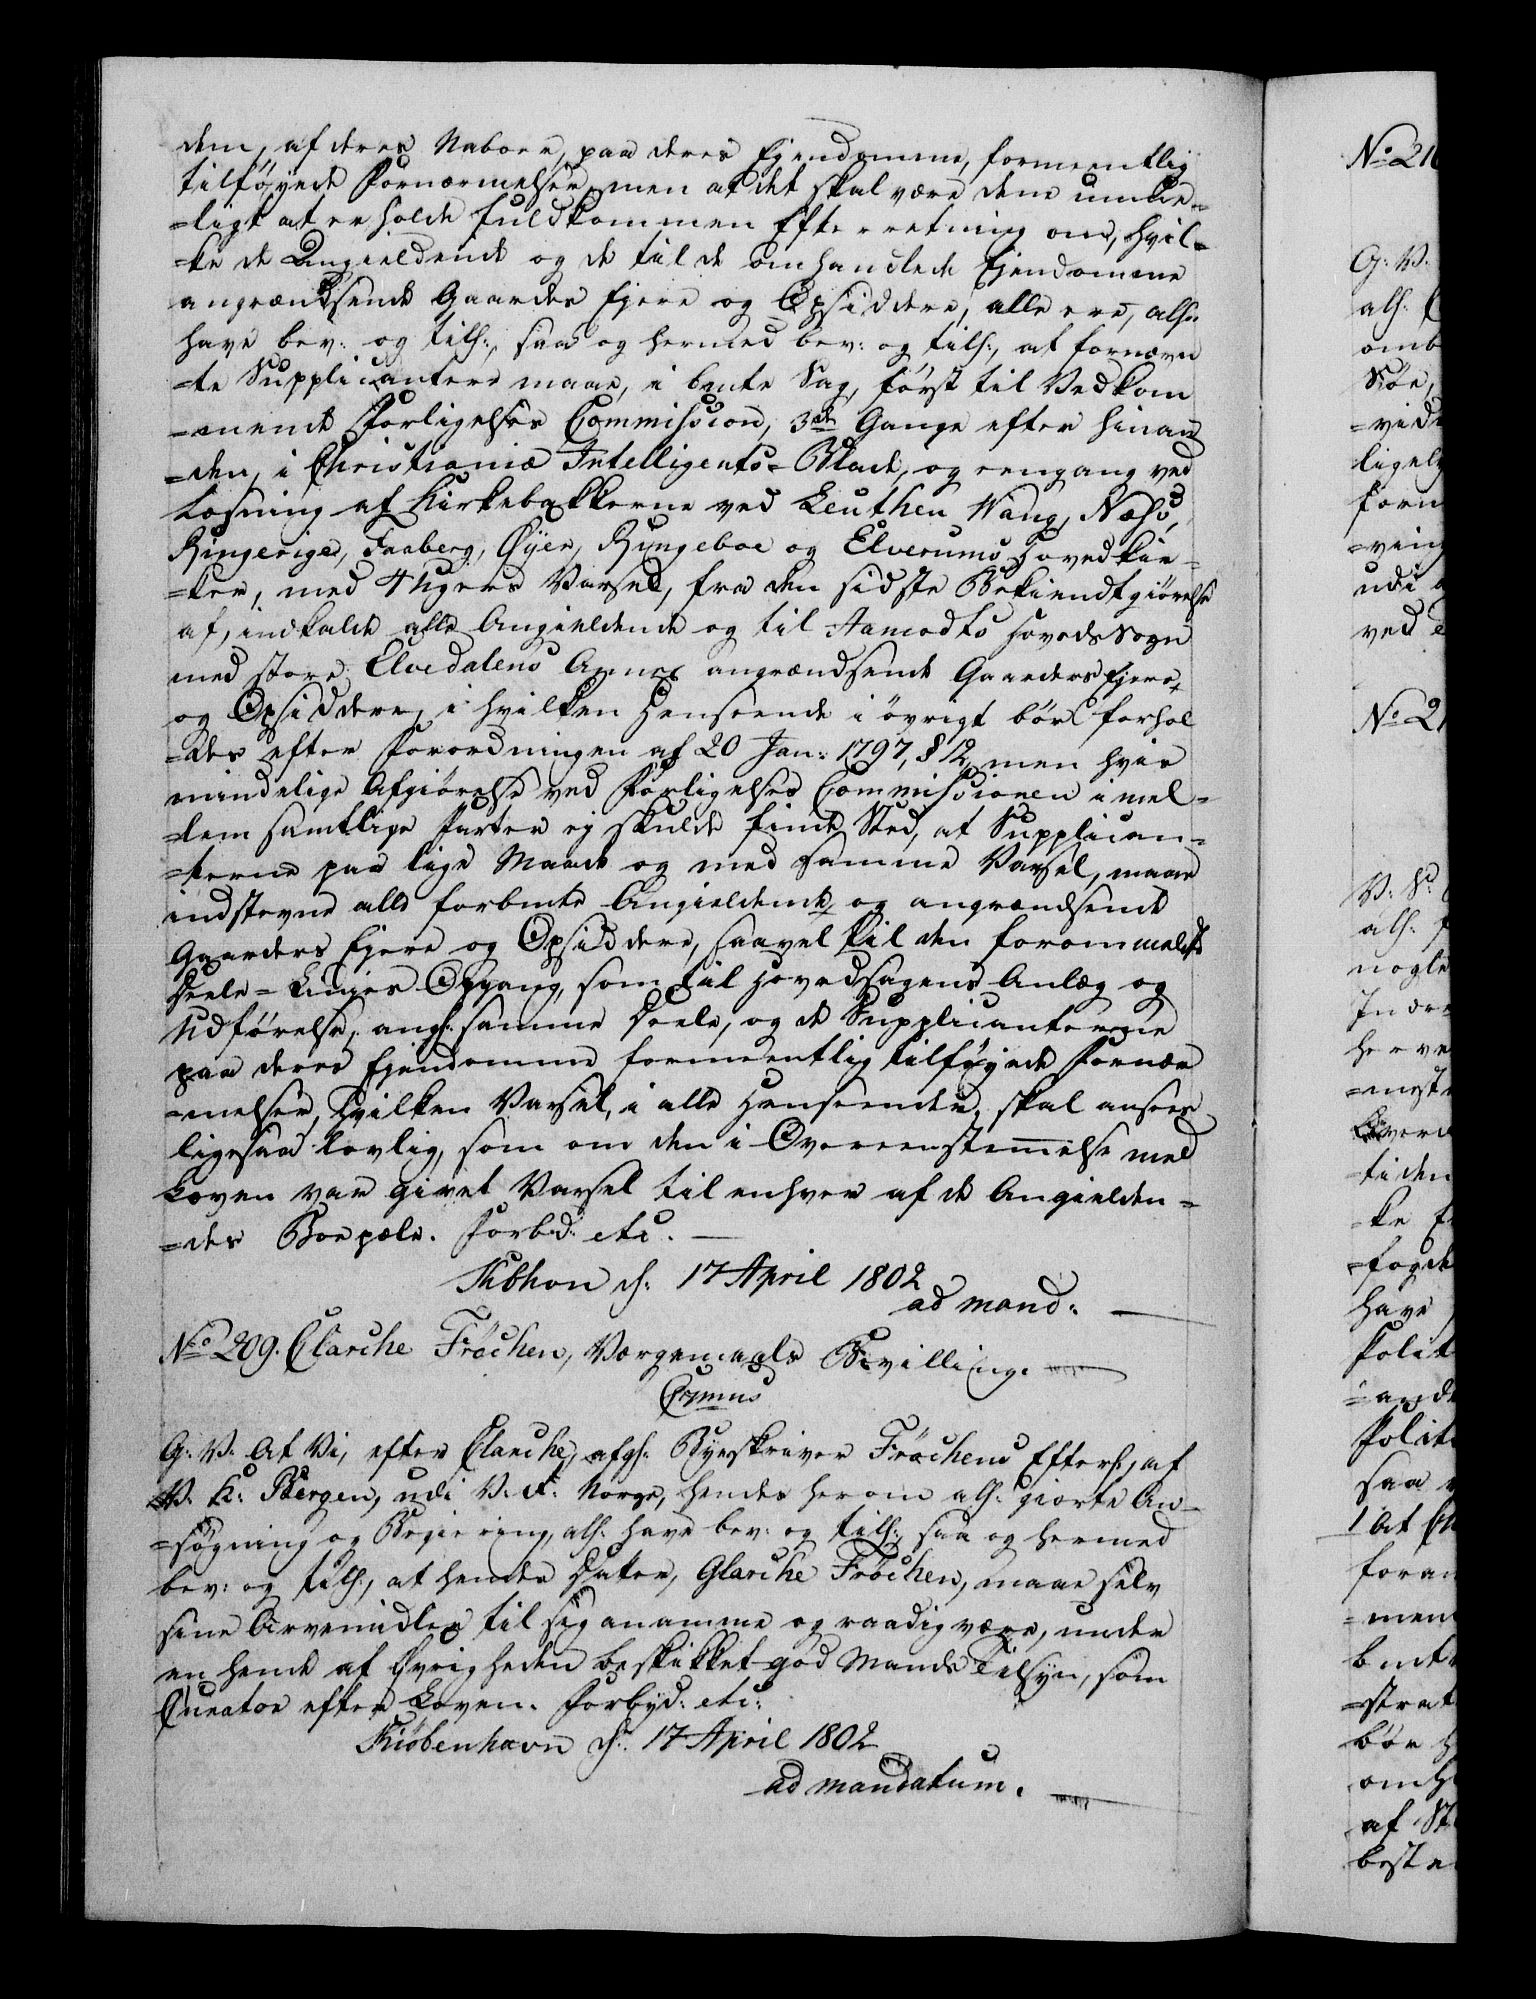 dem, af deres Naboer, paa deres Ejendomme, formeentlig
tilføyede Fornærmelser, men at det skal være dem umue-
=ligt at erholde fuldkommen Efterretning om, hvil=
=ke de Angieldende og de til de omhandlede Ejendomme
angrændsende Gaardes Ejere og Opsiddere, alle ere, allern:
have bev: og till:, saa og hermed bev: og till:, at fornævn
=te Supplicantere maae, i bemte Sag, først til Vedkom
=mende Forligelses Commission, 3de Gange efter hinan
=den, i Christiania Intelligents=Blade, og eengang ved
Læsning af Kirkebakkerne ved Leuthen, Vang, Næss,
Ringeriger, Faaberg, Øyer, Ringeboe og Elverums Hovedkir=
=ker, med 4 Ugers Varsel, fra den sidste Bekiendtgiørelse
af, indkalde alle Angieldende og til Aamodts Hoveds Sogn
med store Elvedalens Annex angrændsende Gaarders Ejere
og Opsiddere, i hvilken Henseende i øvrigt bør forhol
=des efter Forordningen af 20 Jan: 1797, § 12, men hvis
mindelige Afgiørelse ved Forligelses Commissionen imel=
=lem samtlige Parter ej skulde finde Sted, at Supplican=
=terne paa lige Maade og med samme Varsel, maae
indstevne alle forbemte Angieldende og angrændsende
Gaarders Ejere og Opsiddere, saavel til den forommeldte
Deele=Linies Opgang, som til Hovedsagens Anlæg og
Udførelse, ang: samme Deele, og de Supplicanterne
paa deres Ejendomme formeentlig tilføyede Fornær
=melser, hvilken Varsel, i alle Henseender, skal ansees
ligesaa lovlig, som om den i Overeenstemmelse med
Loven var givet Varsel til enhver af de Angielden=
=des Boepæle. Forbd: etc.
Kibhvn d: 17 April 1802
ad mand:
No 209. Clarche Fröchen, Værgemaals Bevilling.
Cr: mus
G: V: At Vi, efter Clarche, afg: Byeskriver Fröchens Efterl:, af
V. K: Bergen, udi V. R. Norge, hendes herom all: giorte An=
=søgning og Begiering, all: have bev: og till:, saa og hermed
bev: og till:, at hendes Datter, Glarche Fröchen, maae selv
sine Arvemidler til sig anamme og raadig være, under
en hende af Øvrigheden beskikket god Mands Tilsyn, som
Curator efter Loven. Forbyd: etc:
Kiøbenhavn d: 17 April 1802
ad mandatum.